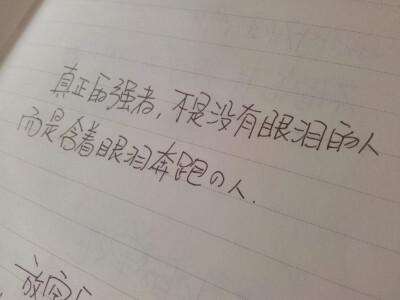 真正的强者，不是没有眼泪的人
而是含着眼泪奔跑の人.